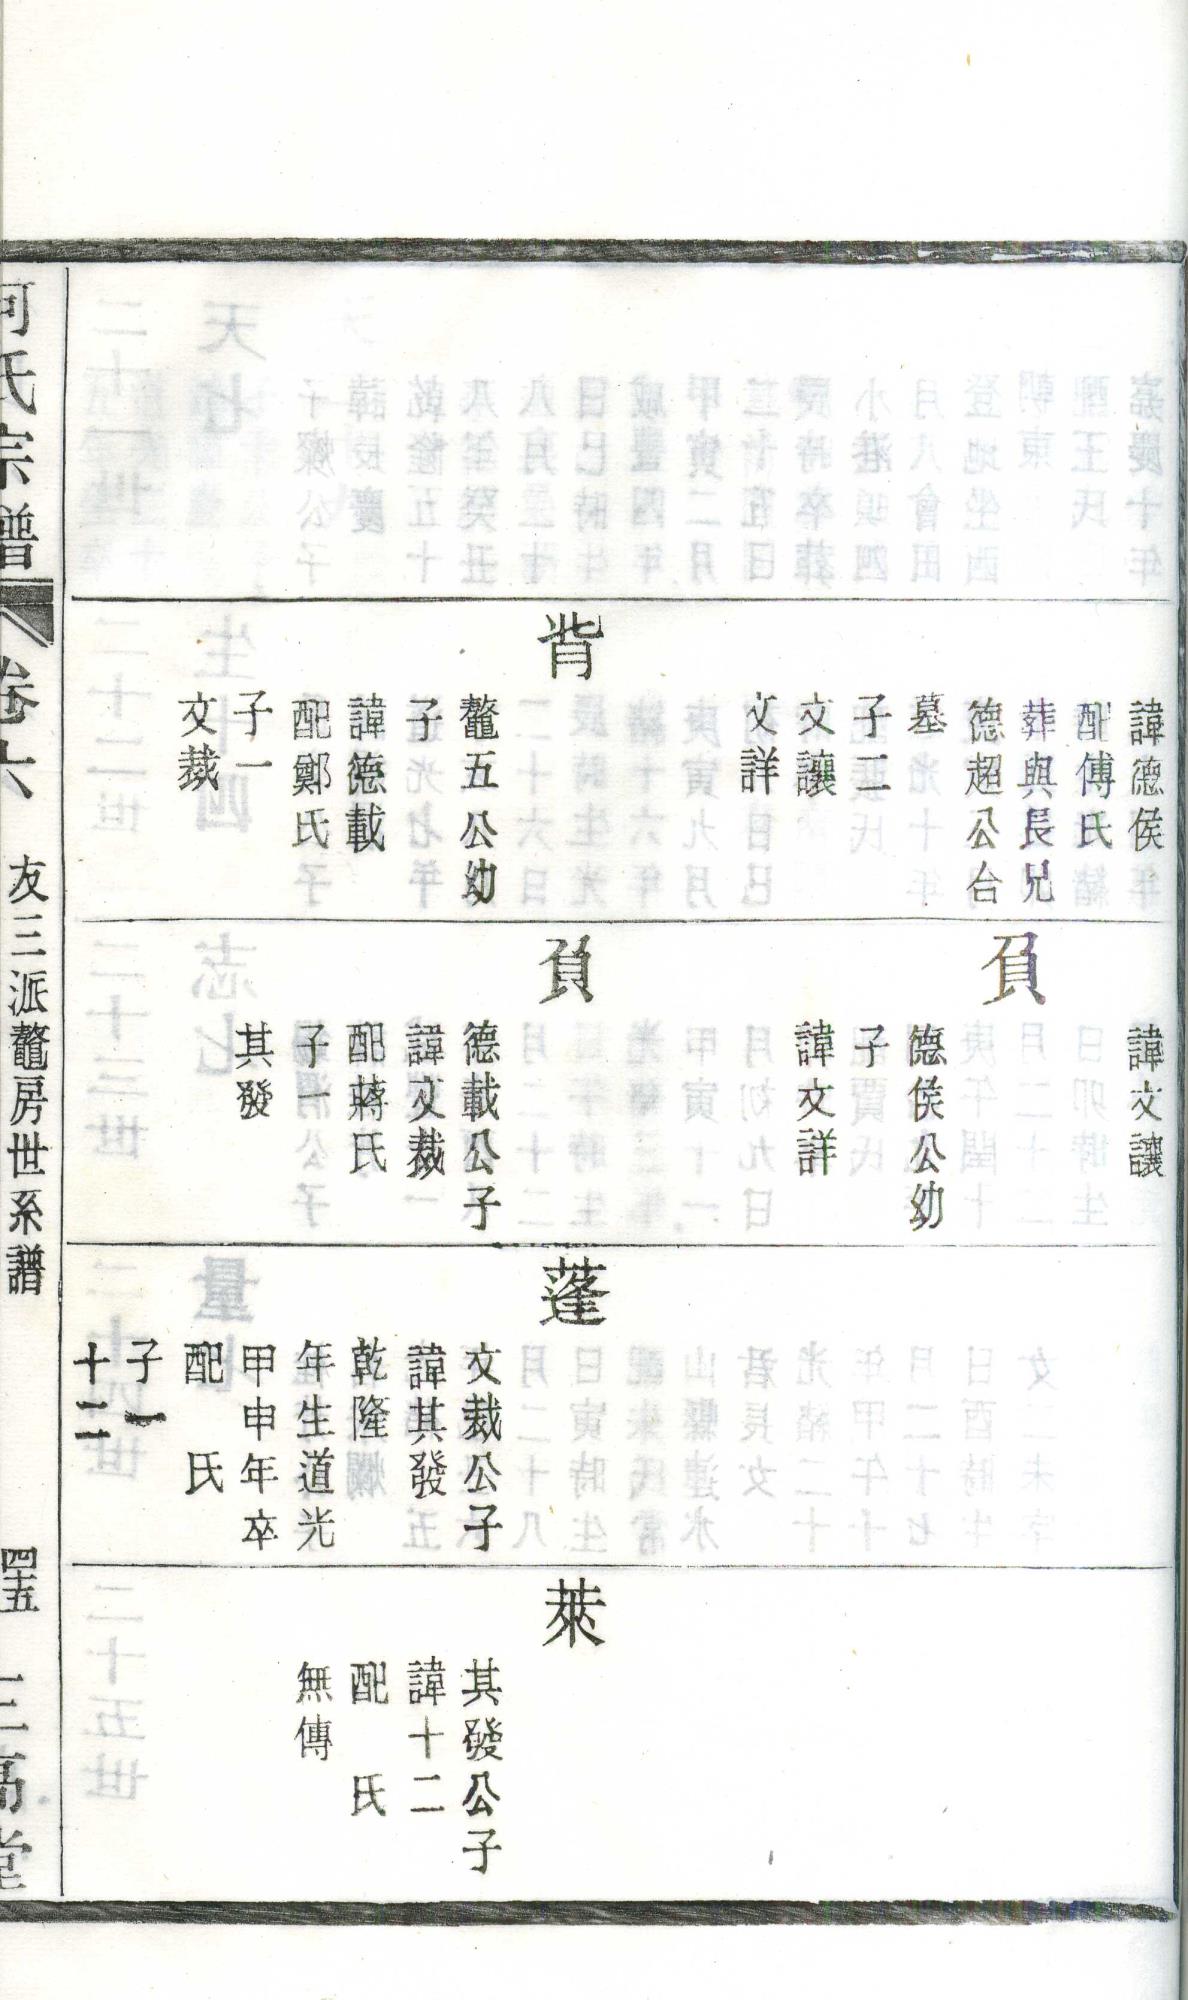 諱德侯
配傅氏
葬與長兄
德超公台
墓
子二
文讓
文詳
背
鼇五公幼
子
諱德載
配鄭氏
子一
文裁
諱文讓
負
德侯公幼
子
諱文詳
負
德載公子
諱文裁
配蔣氏
子一
其發
蓬
文裁公子
諱其發
乾隆
年生道光
甲申年卒
配　氏
子一
十二
萊
其發公子
諱十二
配　氏
無傳
氏宗譜
卷六
友三派鼇房世系譜
四十五
三高堂